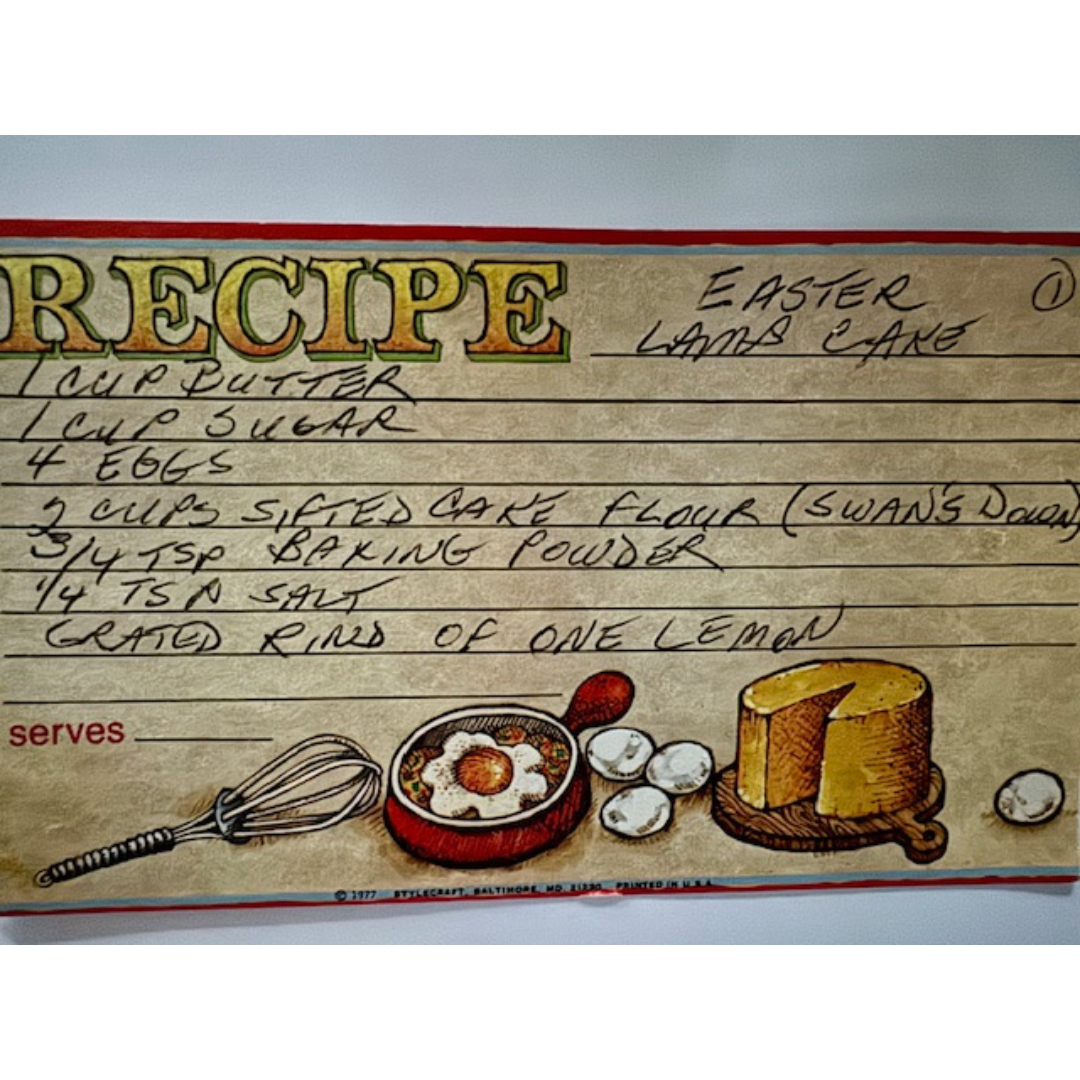 RECIPE
EASTER ①
LAMB CAKE
1 CUP BUTTER
1 CUP SUGAR
4 EGGS
2 CUPS SIFTED CAKE FLOUR (SWAN'S DOWN)
3/4 TSP BAKING POWDER
1/4 TSP SALT
GRATED RIND OF ONE LEMON
serves
© 1977 STYLECRAFT, BALTIMORE, MD. 21230 PRINTED IN U.S.A.